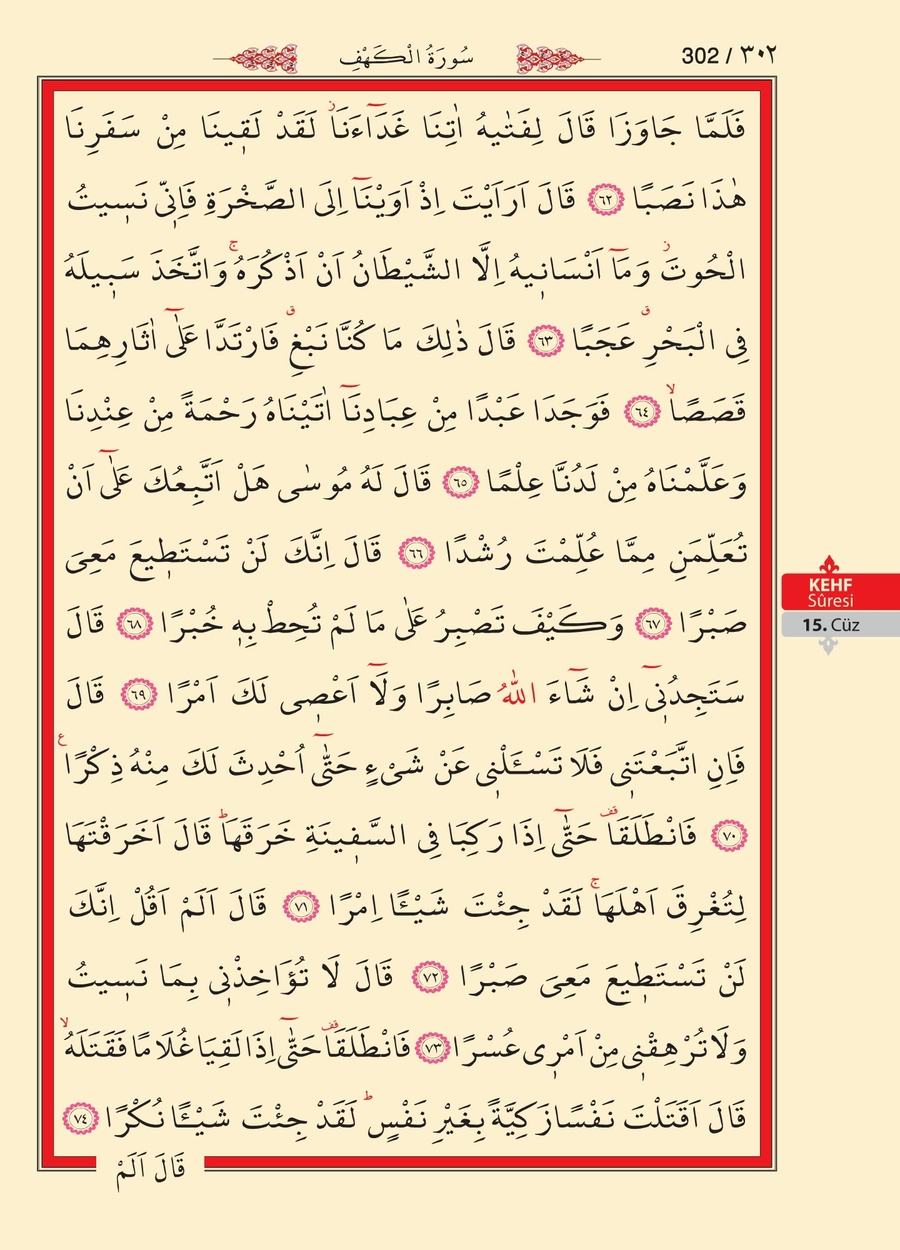 302 / ٣٠٢
سُورَةُ الْكَهْفِ
فَلَمَّا جَاوَزَا قَالَ لِفَتٰيهُ اٰتِنَا غَدَٓاءَنَاۘ لَقَدْ لَقٖينَا مِنْ سَفَرِنَا
هٰذَا نَصَبًا ﴿٦٢﴾ قَالَ اَرَاَيْتَ اِذْ اَوَيْنَٓا اِلَى الصَّخْرَةِ فَاِنّٖى نَسٖيتُ
الْحُوتَؗ وَمَٓا اَنْسَانٖيهُ اِلَّا الشَّيْطَانُ اَنْ اَذْكُرَهُۚ وَاتَّخَذَ سَبٖيلَهُ
فِى الْبَحْرِࣗ عَجَبًا ﴿٦٣﴾ قَالَ ذٰلِكَ مَا كُنَّا نَبْغِࣗ فَارْتَدَّا عَلٰٓى اٰثَارِهِمَا
قَصَصًاۙ ﴿٦٤﴾ فَوَجَدَا عَبْدًا مِنْ عِبَادِنَٓا اٰتَيْنَاهُ رَحْمَةً مِنْ عِنْدِنَا
وَعَلَّمْنَاهُ مِنْ لَدُنَّا عِلْمًا ﴿٦٥﴾ قَالَ لَهُ مُوسٰى هَلْ اَتَّبِعُكَ عَلٰٓى اَنْ
تُعَلِّمَنِ مِمَّا عُلِّمْتَ رُشْدًا ﴿٦٦﴾ قَالَ اِنَّكَ لَنْ تَسْتَطٖيعَ مَعِىَ
صَبْرًا ﴿٦٧﴾ وَكَيْفَ تَصْبِرُ عَلٰى مَا لَمْ تُحِطْ بِهٖ خُبْرًا ﴿٦٨﴾ قَالَ
سَتَجِدُنٖٓى اِنْ شَٓاءَ اللّٰهُ صَابِرًا وَلَٓا اَعْصٖى لَكَ اَمْرًا ﴿٦٩﴾ قَالَ
فَاِنِ اتَّبَعْتَنٖى فَلَا تَسْـَٔلْنٖى عَنْ شَىْءٍ حَتّٰٓى اُحْدِثَ لَكَ مِنْهُ ذِكْرًا ع
﴿٧٠﴾ فَانْطَلَقَا۠ حَتّٰٓى اِذَا رَكِبَا فِى السَّفٖينَةِ خَرَقَهَاؕ قَالَ اَخَرَقْتَهَا
لِتُغْرِقَ اَهْلَهَاۚ لَقَدْ جِئْتَ شَيْـًٔا اِمْرًا ﴿٧١﴾ قَالَ اَلَمْ اَقُلْ اِنَّكَ
لَنْ تَسْتَطٖيعَ مَعِىَ صَبْرًا ﴿٧٢﴾ قَالَ لَا تُؤَاخِذْنٖى بِمَا نَسٖيتُ
وَلَا تُرْهِقْنٖى مِنْ اَمْرٖى عُسْرًا ﴿٧٣﴾ فَانْطَلَقَا۠ حَتّٰٓى اِذَا لَقِيَا غُلَامًا فَقَتَلَهُۙ
قَالَ اَقَتَلْتَ نَفْسًا زَكِيَّةً بِغَيْرِ نَفْسٍؕ لَقَدْ جِئْتَ شَيْـًٔا نُكْرًا ﴿٧٤﴾
قَالَ اَلَمْ
KEHF
Sûresi
15. Cüz